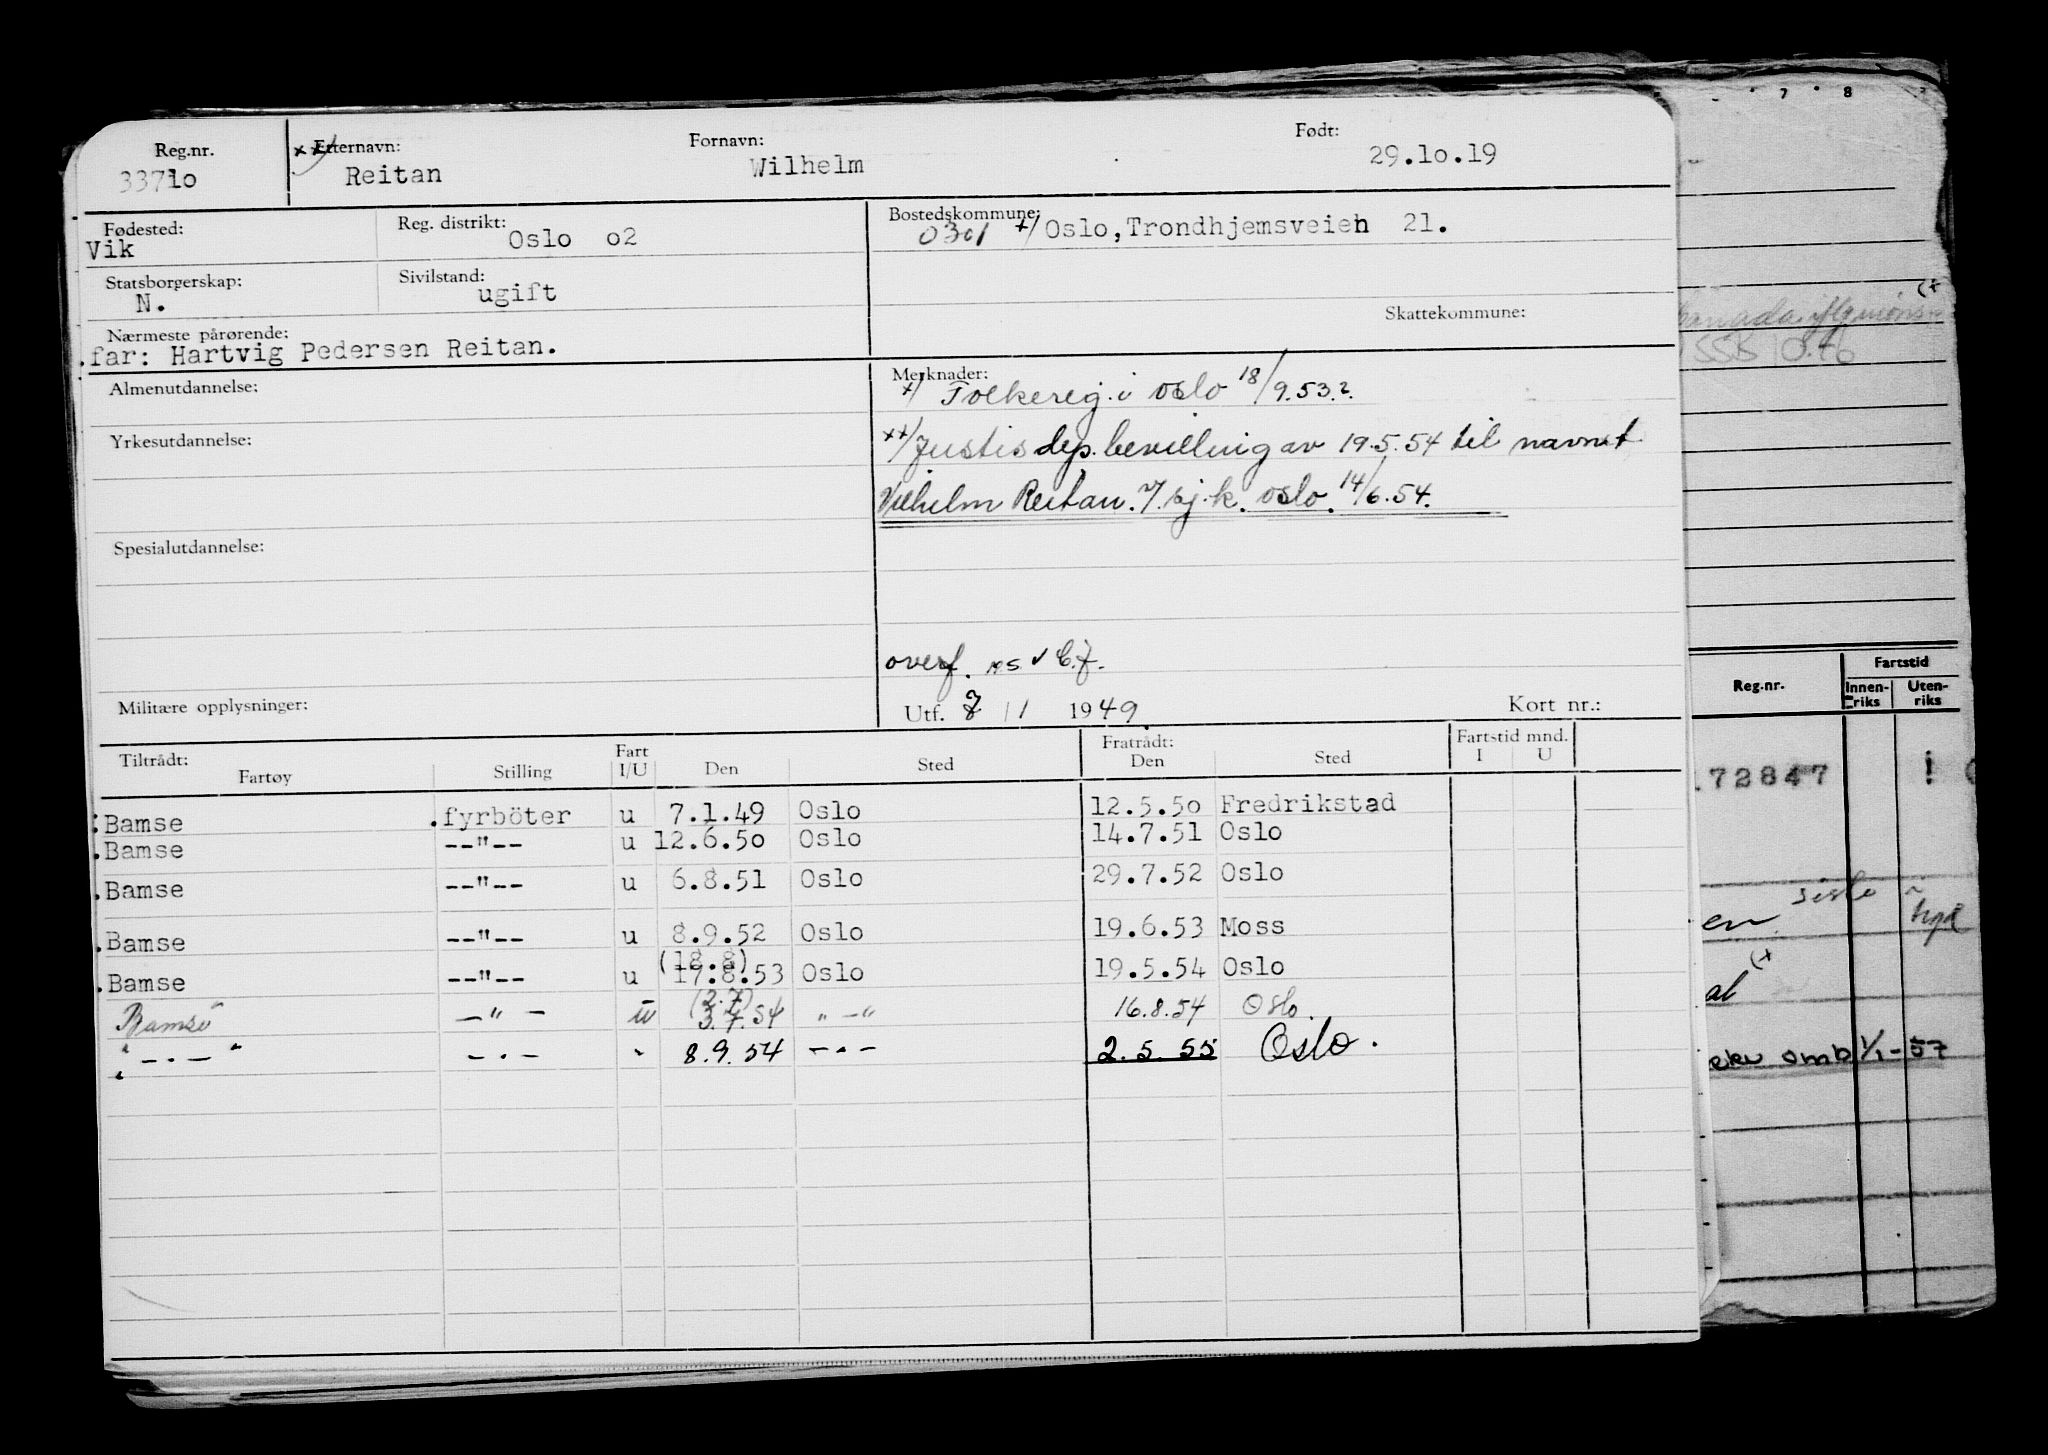 Reg.nr. xx/ Etternavn: Fornavn: Født:
33710 Reitan Wilhelm 29.10.19
Fødested: Reg. distrikt: Bostedskommune:
Vik Oslo 02 0301 x/ Oslo, Trondhjemsveien 21.
Statsborgerskap: Sivilstand:
N. ugift
Skattekommune:
Nærmeste pårørende:
far: Hartvig Pedersen Reitan.
Almenutdannelse: Merknader:
x/ Folkereg. i oslo 18/9.53.
Yrkesutdannelse:
xx/ Justisdep. bevilling av 19.5.54 til navnet
Vilhelm Reitan. sj.k. oslo. 14/6.54.
Spesialutdannelse:
overf.
Militære opplysninger: Utf. 7 / 1 1949. Kort nr.:
Tiltrådt: Fart Fratrådt: Fartstid mnd.
Fartøy Stilling I/U Den Sted Den Sted I U
Bamse fyrböter u 7.1.49 Oslo 12.5.50 Fredrikstad
Bamse --"-- u 12.6.50 Oslo 14.7.51 Oslo
Bamse --"-- u 6.8.51 Oslo 29.7.52 Oslo
Bamse --"-- u 8.9.52 Oslo 19.6.53 Moss
(18.8)
Bamse --"-- u 17.8.53 Oslo 19.5.54 Oslo
(2.7)
Bamse -"- u 3.7.54 "-" 16.8.54 Oslo.
"-.-" -.- " 8.9.54 -"- 2.5.55 Oslo.
7 8
(x
SSB
Reg.nr. Fartstid
Innen-riks Uten-riks
72847 !
en.
(x
al
omb 1/1-57